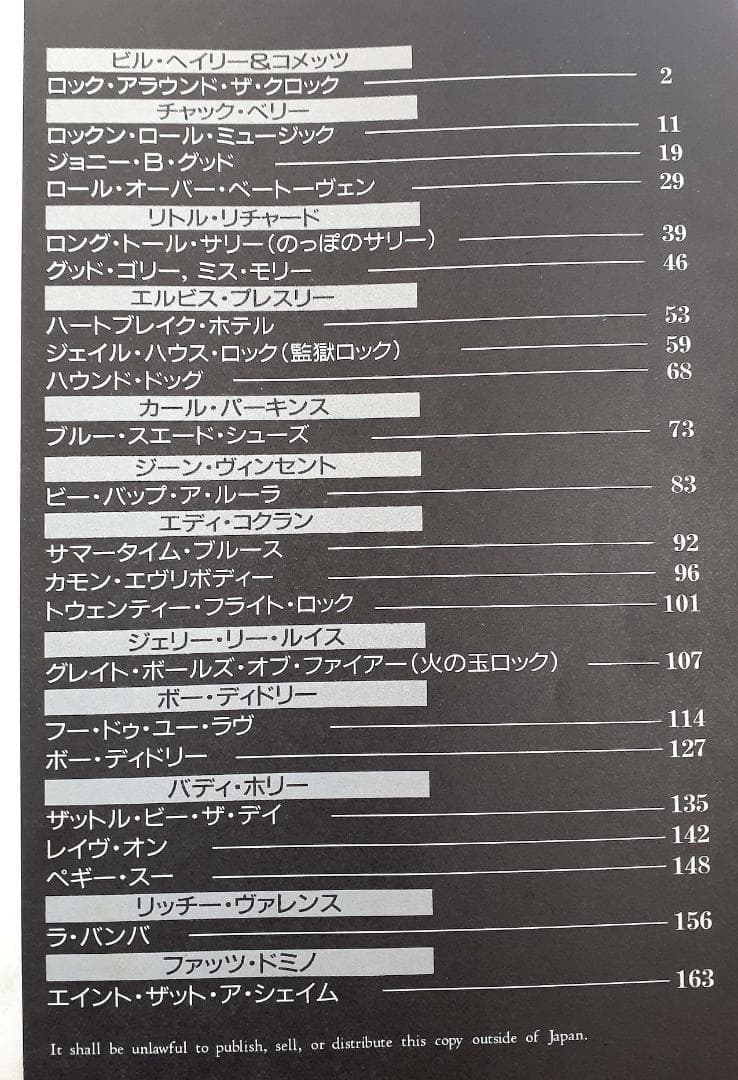 ビル・ヘイリー&コメッツ
ロック・アラウンド・ザ・クロック 2
チャック・ベリー
ロックン・ロール・ミュージック 11
ジョニー・B・グッド 19
ロール・オーバー・ベートーヴェン 29
リトル・リチャード
ロング・トール・サリー(のっぽのサリー) 39
グッド・ゴリー, ミス・モリー 46
エルビス・プレスリー
ハートブレイク・ホテル 53
ジェイル・ハウス・ロック(監獄ロック) 59
ハウンド・ドッグ 68
カール・パーキンス
ブルー・スエード・シューズ 73
ジーン・ヴィンセント
ビー・バップ・ア・ルーラ 83
エディ・コクラン
サマータイム・ブルース 92
カモン・エヴリボディー 96
トウェンティー・フライト・ロック 101
ジェリー・リー・ルイス
グレイト・ボールズ・オブ・ファイアー(火の玉ロック) 107
ボー・ディドリー
フー・ドゥ・ユー・ラヴ 114
ボー・ディドリー 127
バディ・ホリー
ザットル・ビー・ザ・デイ 135
レイヴ・オン 142
ペギー・スー 148
リッチー・ヴァレンス
ラ・バンバ 156
ファッツ・ドミノ
エイント・ザット・ア・シェイム 163
It shall be unlawful to publish, sell, or distribute this copy outside of Japan.